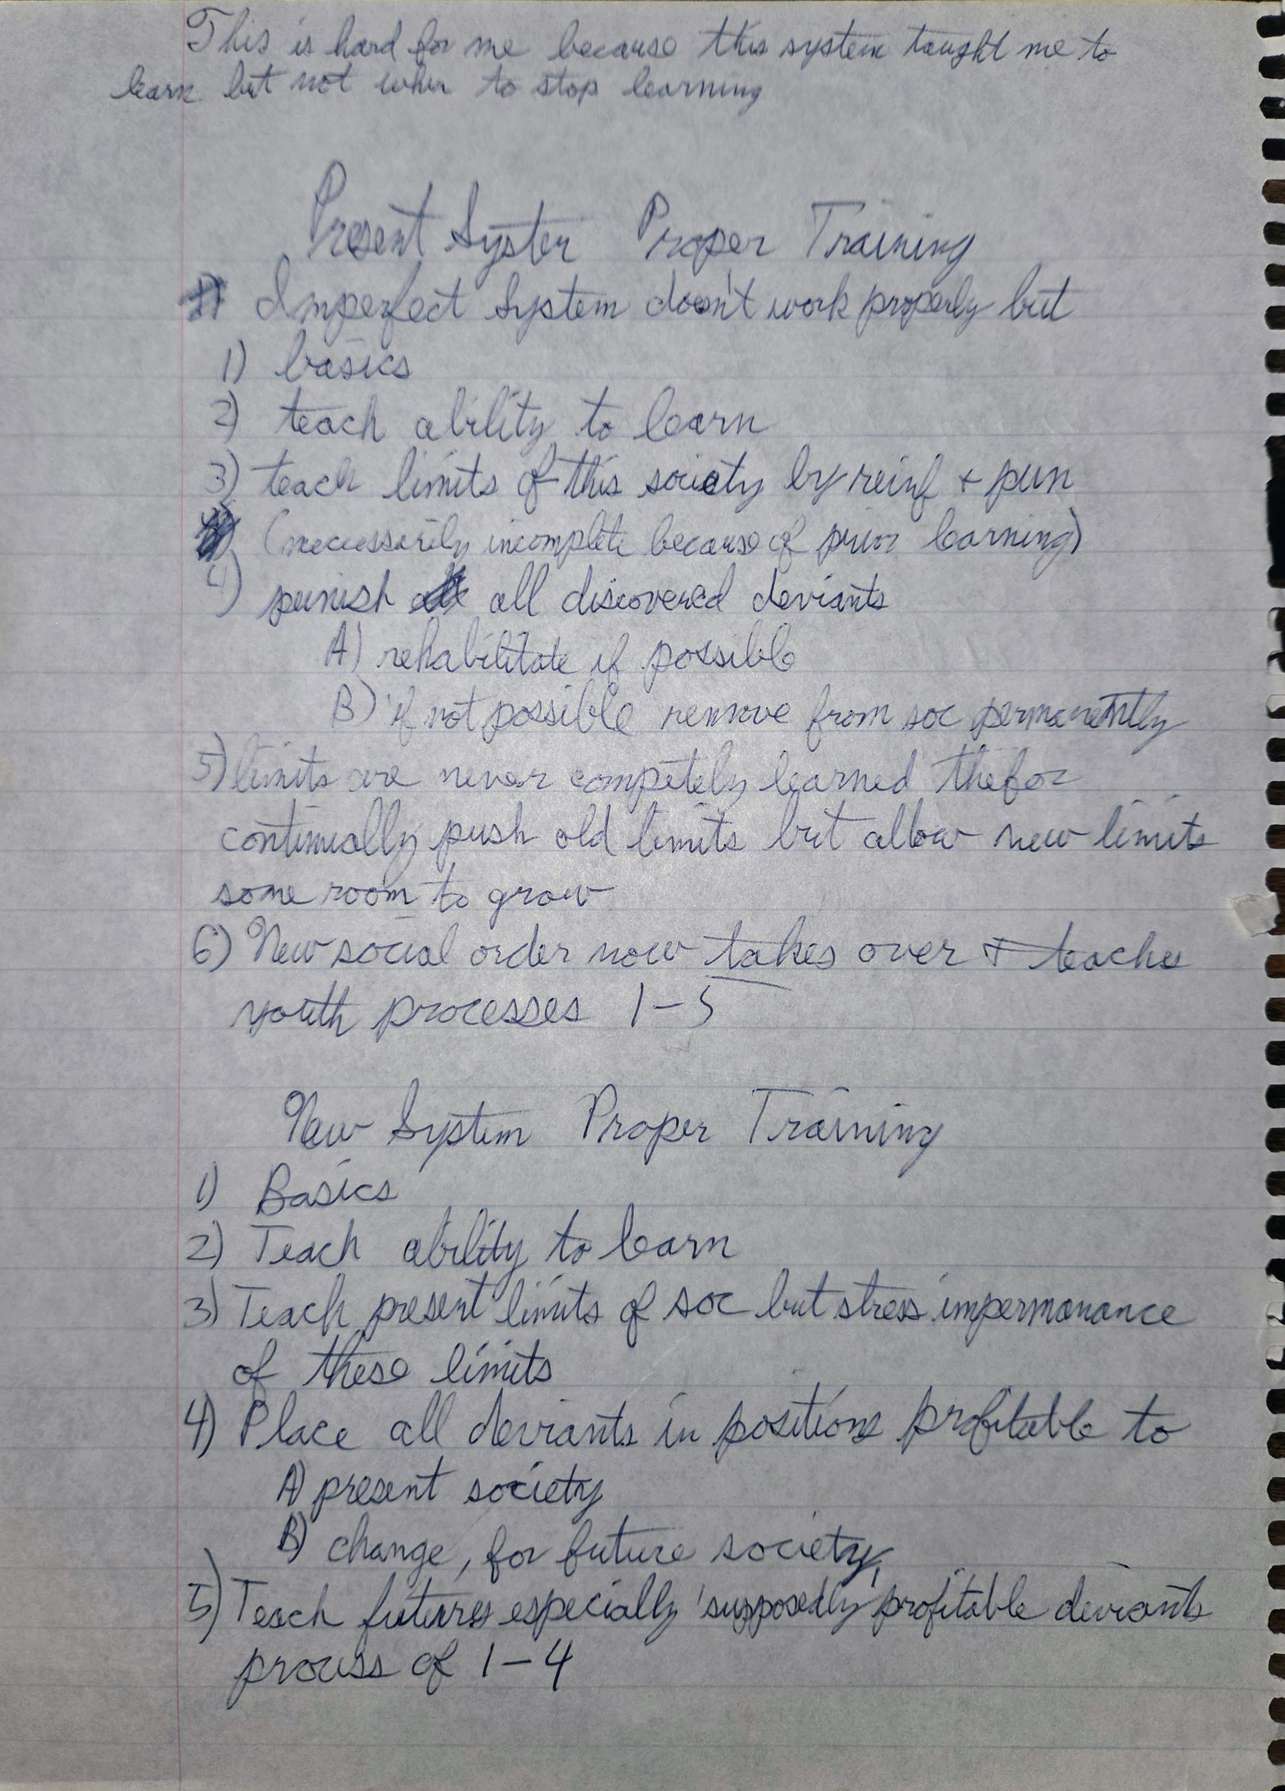 This is hard for me because this system taught me to
learn but not when to stop learning
Present System Proper Training
Imperfect System doesn't work properly but
1) basics
2) teach ability to learn
3) teach limits of this society by reinf + pun
(necessarily incomplete because of prior learning)
4) punish all discovered deviants
A) rehabilitate if possible
B) if not possible remove from soc permanently
5) limits are never competely learned thefor
continually push old limits but allow new limits
some room to grow
6) New social order now takes over + teache
youth processes 1-5
New System Proper Training
1) Basics
2) Teach ability to learn
3) Teach present limits of soc but stress impermanance
of these limits
4) Place all deviants in positions profitable to
A) present society
B) change, for future society
5) Teach futures especially 'supposedly' profitable deviants
prouss of 1-4